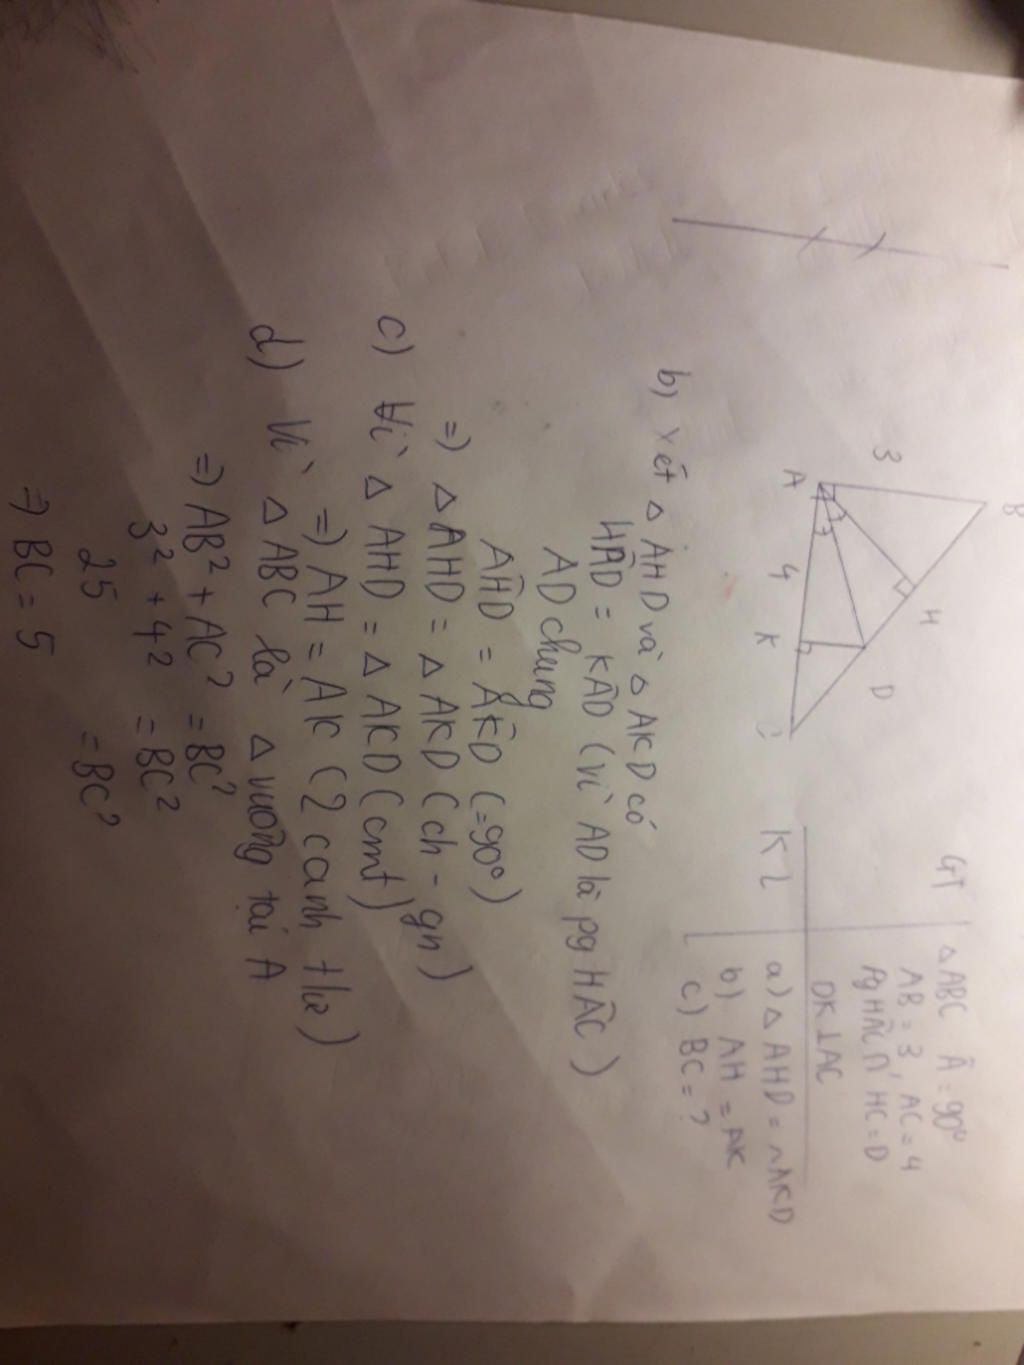 B
3
H
D
A
4
K
GT
△ABC Â = 90°
AB = 3, AC = 4
Pg HÂC ∩ HC = D
DK ⊥ AC
KL
a) △ AHD = △AKD
b) AH = AK
c) BC = ?
b) xét △ AHD và △ AKD có
HÂD = KÂD (vì AD là pg HÂC)
AD chung
AĤD = AK̂D (=90°)
=> △AHD = △AKD (ch - gn)
c) Vì △ AHD = △ AKD (cmt)
=> AH = AK (2 cạnh t/ư)
d) Vì △ ABC là △ vuông tại A
=> AB² + AC² = BC²
3² + 4² = BC²
25 = BC²
=> BC = 5